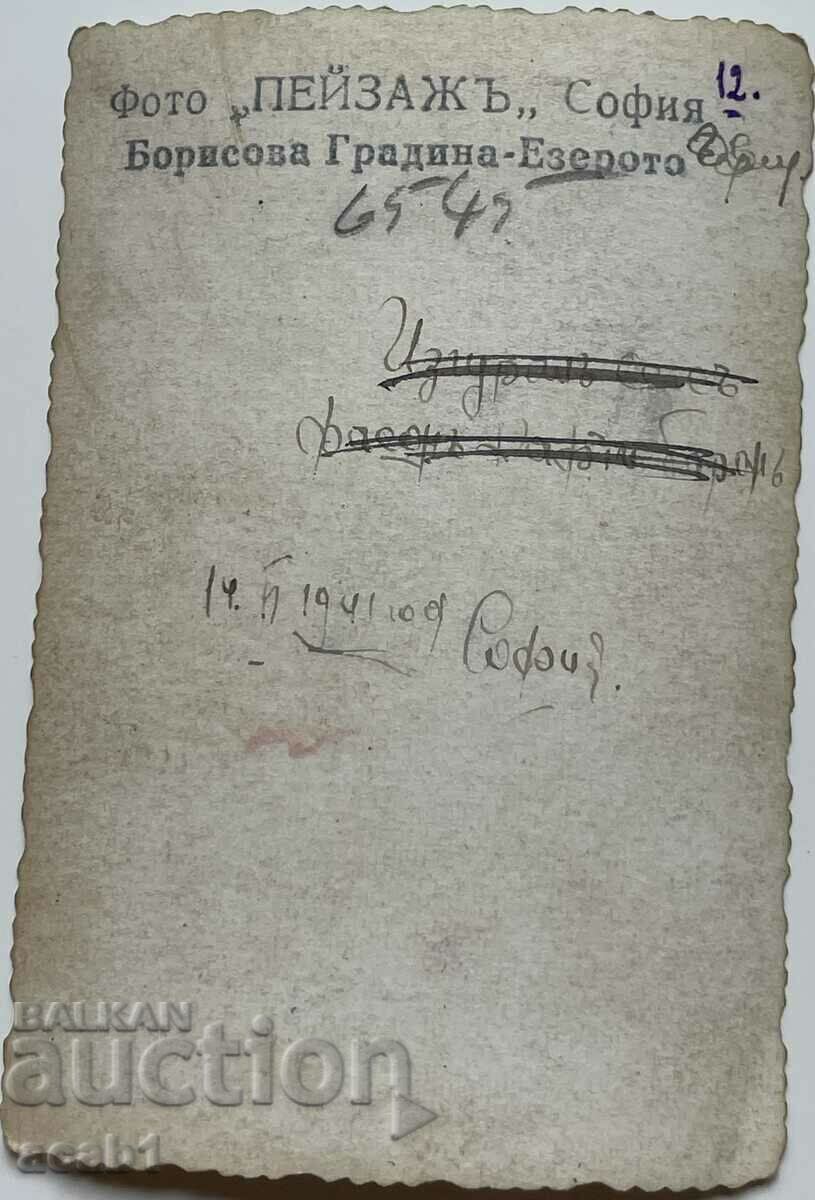 Фото „ПЕЙЗАЖЪ„ София 12.
Борисова Градина-Езерото
65 45
14. II 1941 год
София.
BALKAN
auction
acab1